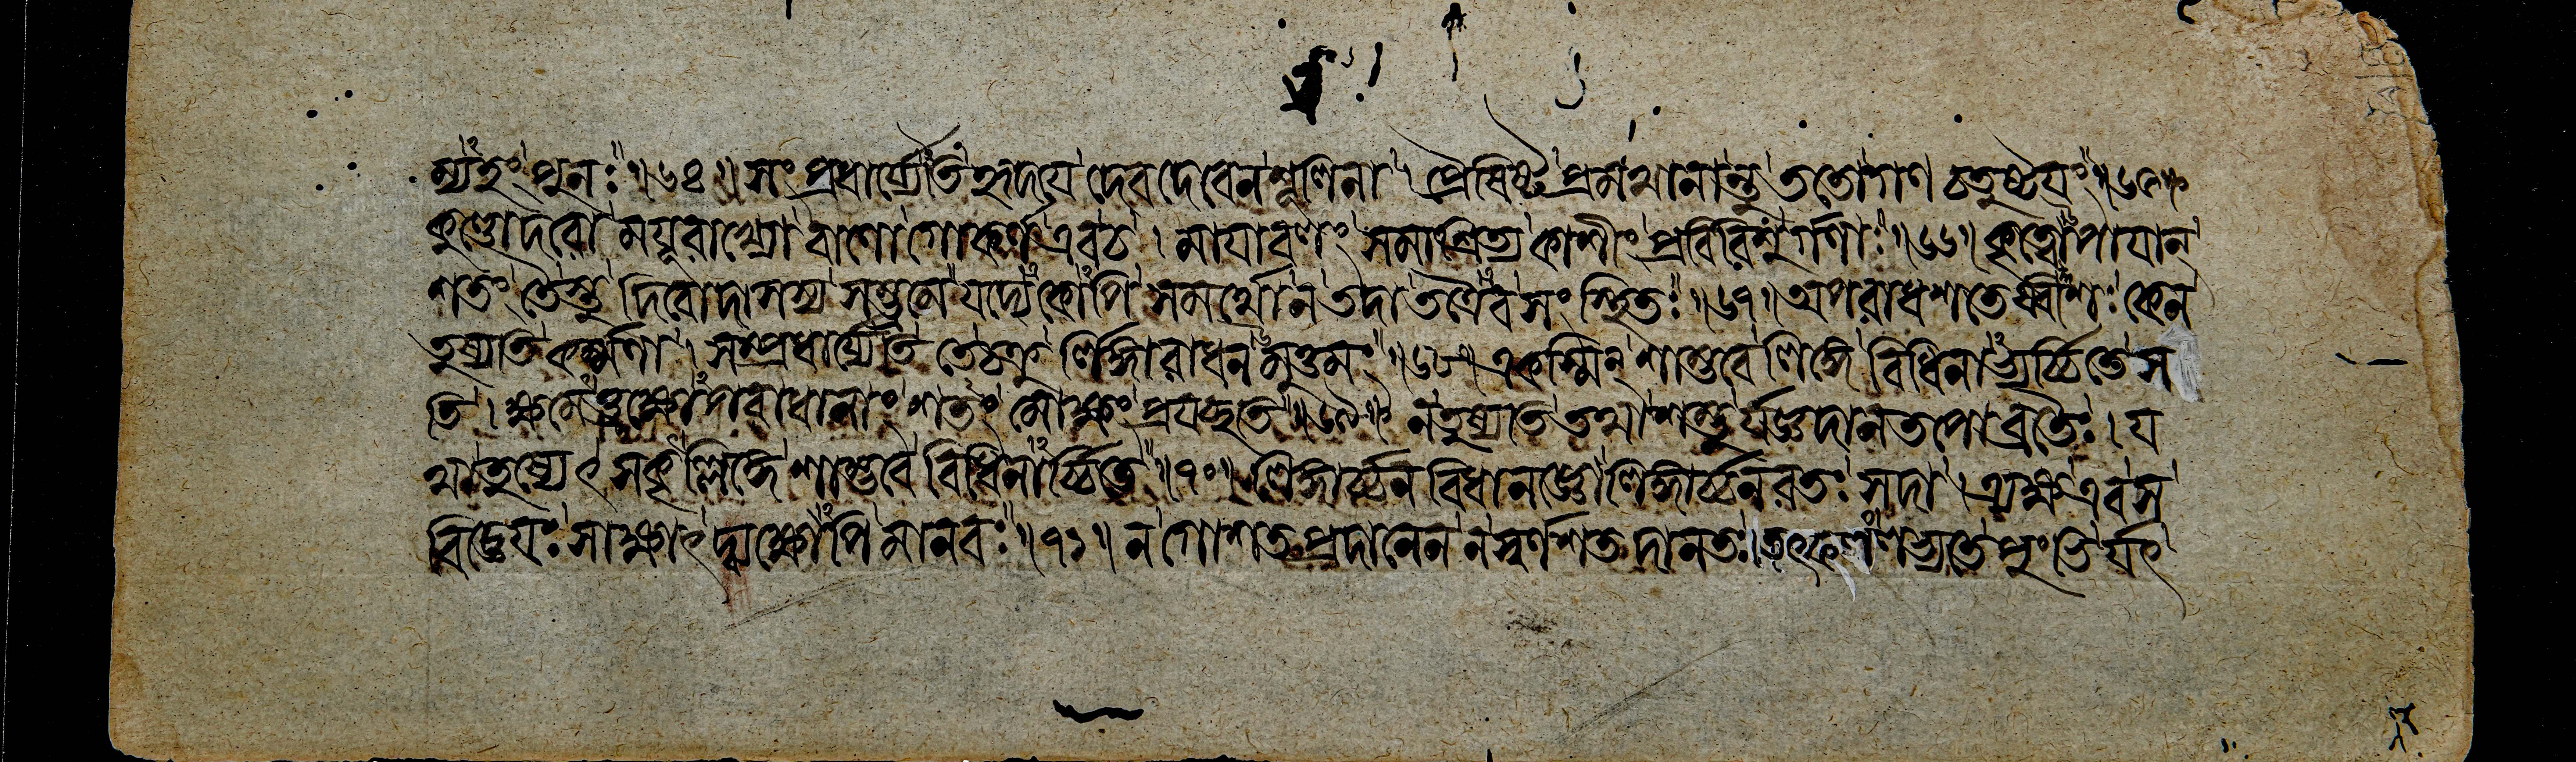 ম্যহং পুনঃ ॥ ৬৪ ॥ সংপ্রধার্য্যেতি হৃদয়ে দেবদেবেন শূলিনা । প্রৈষিষ্ট প্রমথানান্তু ততো গণ চতুষ্টয়ং ॥ ৬৫ ॥
কুণ্ডোদরো ময়ূরাখ্যো বাণো গোকর্ণ এব চ । মায়াবলং সমাশ্রিত্য কাশীং প্রবিবিশুর্গণাঃ ॥ ৬৬ ॥ কৃত্বোপায়ান্
শতং তৈস্তু দিবোদাসস্য সম্ভ্রমে যদ্যেকোপি সমর্থো ন তদা তত্রৈব সংস্থিতঃ ॥ ৬৭ ॥ অপরাধশতেষ্বীশঃ কেন
তুষ্যতি কর্ম্মণা । সম্প্রধার্য্যেতি তে চক্রু র্লিঙ্গারাধনমুত্তমং ॥ ৬৮ ॥ একস্মিন্ শাম্ভবে লিঙ্গে বিধিনাভ্যর্চ্চিতে স
তি । ক্ষমেত্র্যক্ষোপরাধানাং শতং মোক্ষং প্রযচ্ছতি ॥ ৬৯ ॥ ন তুষ্যতি তথা শম্ভুর্যজ্ঞদানতপোব্রতৈঃ । য
থা তুষ্যেৎ সকৃল্লিঙ্গে শাম্ভবে বিধিনার্চ্চিতে ॥ ৭০ ॥ লিঙ্গার্চ্চনবিধানজ্ঞো লিঙ্গার্চ্চনরতঃ সদা । ত্র্যক্ষ এব স
বিজ্ঞেয়ঃ সাক্ষাৎ দ্ব্যক্ষোপি মানবঃ ॥ ৭১ ॥ ন গোশতপ্রদানেন ন স্বর্ণশতদানতঃ । তৎফলং লভ্যতে পুংভির্যৎ